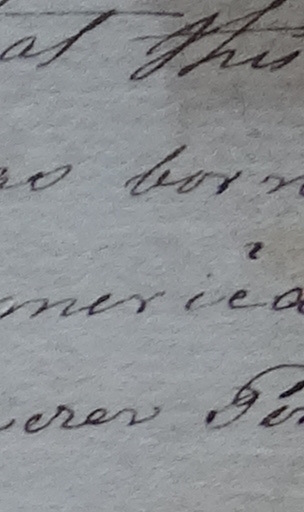 at this
as born
merica
erer Pen